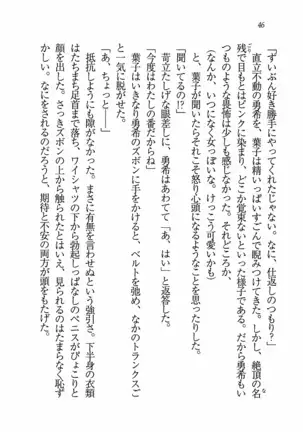 46
「ずいぶん好き勝手にやってくれたじゃない。なに、仕返しのつもり？」
直立不動の勇希を、葉子は精いっぱいすごんで睨みつけてきた。しかし、絶頂の名
残で目もとはピンクに染まり、どこか覚束ないといった様子である。だから勇希もい
つものような畏怖は少しも感じなかった。それどころか、
（なんか、いつになく女っぽいな。けっこう可愛いかも）
と、葉子に聞かれたらそれこそ怒り心頭になるようなことを思ったりした。
「聞いてるの!?」
苛立たしげな眼差しに、勇希はあわてて「あ、はい」と返答した。
「今度はわたしの番だからね」
葉子はいきなり勇希のズボンに手をかけると、ベルトを弛め、なかのトランクスご
と一気に脱がせた。
「あ、ちょっと――」
抵抗しようにも隙がなかった。まさに有無を言わせぬという強引さ。下半身の衣類
はたちまち足首まで落ち、ワイシャツの下から勃起しっぱなしのペニスがぴょこりと
顔を出した。さっきズボンの上から触られたとはいえ、見られるのはたまらなく恥ず
かしい。なにをされるのだろうと、期待と不安の両方が頭をもたげた。